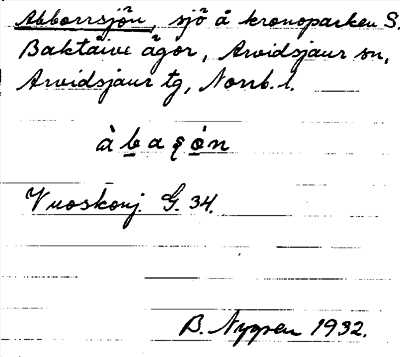 Abborrsjön, sjö å kronoparken S.
Baktåive ägor, Arvidsjaur sn,
Arvidsjaur tg, Norrb. l.
Vuoskonj. G. 34.
B. Nygren 1932.